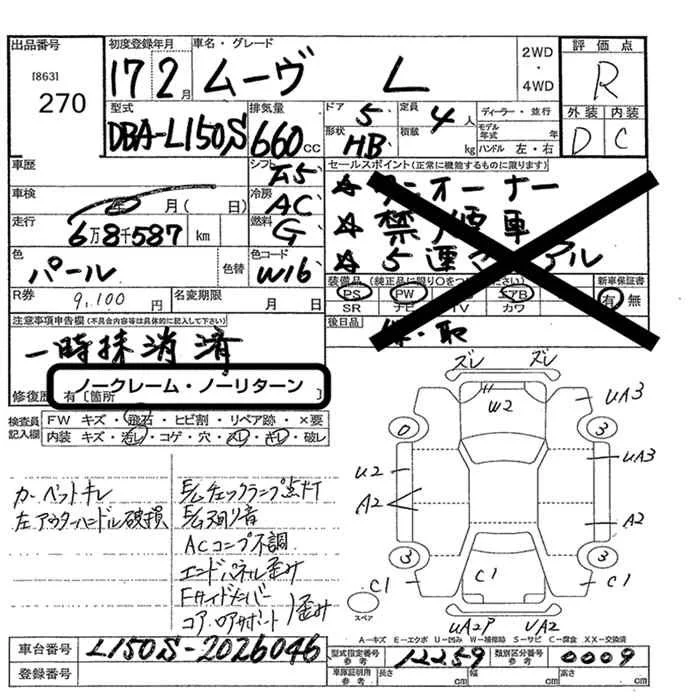 出品番号
[863]
270
初度登録年月
17年2月
車名・グレード
ムーヴ L
2WD
・
4WD
評価点
R
外装 内装
D C
型式
DBA-L150S
排気量
660cc
ドア 5
定員 4人
形状 HB
積載 kg
ディーラー・並行
モデル年式 年
ハンドル 左・右
車歴
シフト F5
セールスポイント(正常に機能するものに限ります)
☆ワンオーナー
☆禁煙車
☆5連マニュアル
車検
年 月(日)
冷房 AC
走行
6万8千587km
燃料 G
色
パール
色替
色コード
W16
装備品(純正品に限り○をつけ
新車保証書
PS PW エアB
SR ナビ TV カワ
有 無
R券
9,100円
名変期限
月 日
後日品
注意事項申告欄(不具合内容等は具体的に記入して下さい)
一時抹消済
修復歴 有〔箇所 〕
ノークレーム・ノーリターン
検査員記入欄
FW キズ・飛石・ヒビ割・リペア跡・×要
内装 キズ・汚レ・コゲ・穴・スレ・キレ・破レ
カーペットキレ
左アウターハンドル破損
E/Gチェックランプ点灯
E/G異音
ACコンプ不調
エンドパネル歪み
Fサイドメンバー
コア.ロアサポート 歪み
ズレ ズレ
W2
UA3
0
3
U2
UA3
A2
A2
3
3
C1
C1
C1
スペア
UA2P UA2
A－キズ E－エクボ U－凹み W－補修跡 S－サビ C－腐食 XX－交換済
車台番号
L150S-2026046
型式指定番号
参考
12259
類別区分番号
参考
0009
登録番号
車庫証明用
参考
長さ cm
幅 cm
高さ cm